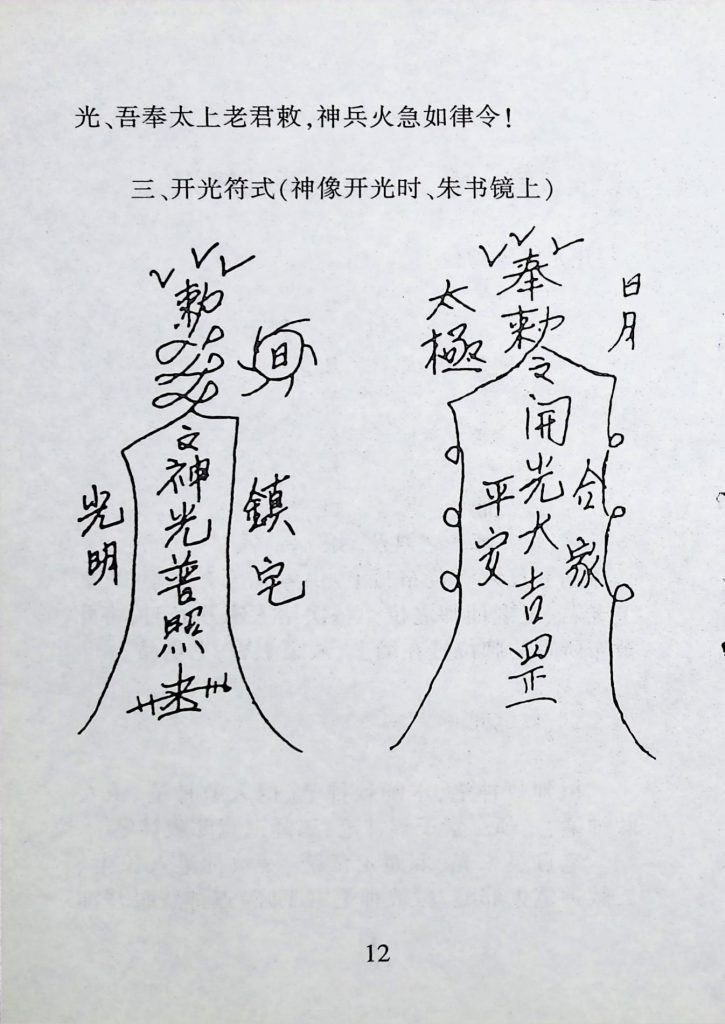 光、吾奉太上老君敕,神兵火急如律令!
三、开光符式(神像开光时、朱书镜上)
敕
日
神光普照
光明
鎮宅
奉敕令
太極
日月
開光大吉罡
平安
合家
12